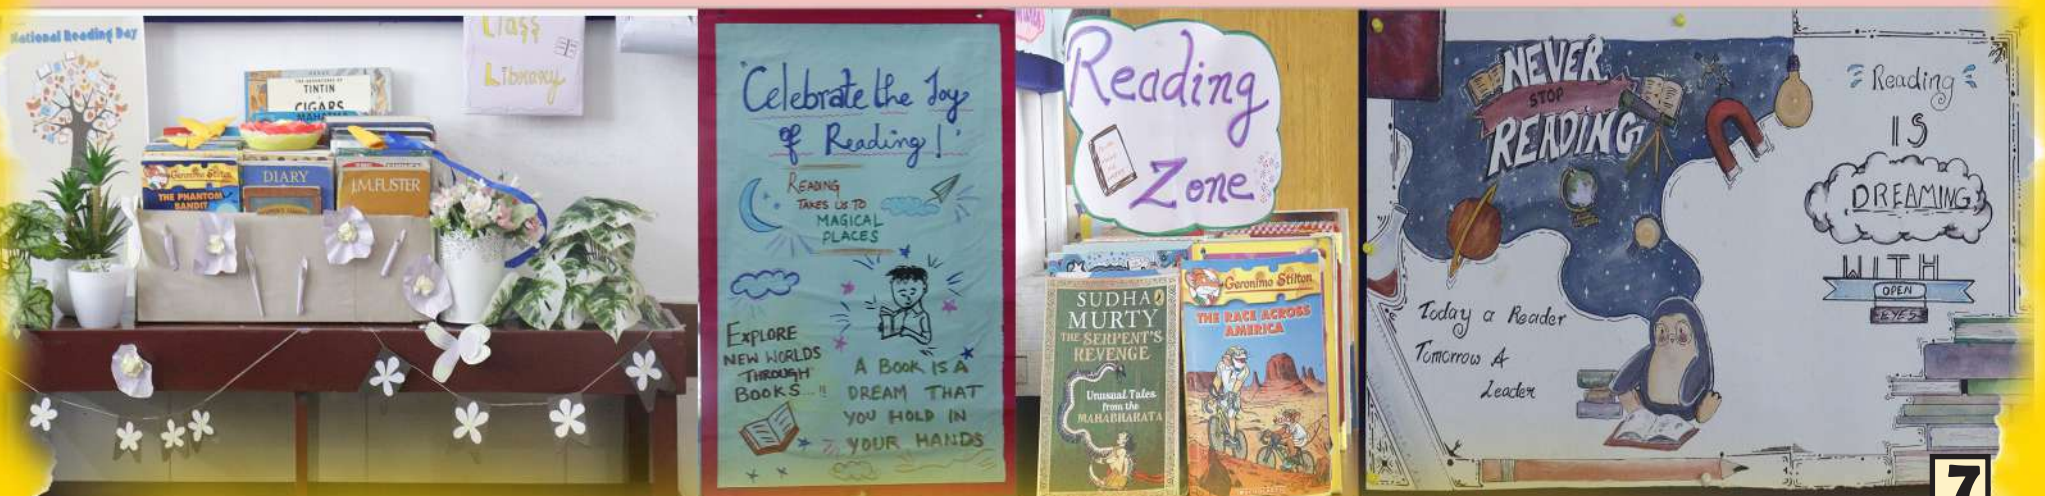 National Reading Day
Class
Library
THE ADVENTURES OF
TINTIN
CIGARS
Geronimo Stilton
THE PHANTOM
BANDIT
DIARY
J.M.FUSTER
'Celebrate the Joy
of Reading!'
READING
TAKES US TO
MAGICAL
PLACES
EXPLORE
NEW WORLDS
THROUGH
BOOKS...!!
A BOOK IS A
DREAM THAT
YOU HOLD IN
YOUR HANDS
Reading
Zone
SUDHA
MURTY
THE SERPENT'S
REVENGE
Unusual Tales
from the
MAHABHARATA
Geronimo Stilton
THE RACE ACROSS
AMERICA
SCHOLASTIC
NEVER
STOP
READING
Today a Reader
Tomorrow A
Leader
Reading
IS
DREAMING
WITH
OPEN
EYES
7